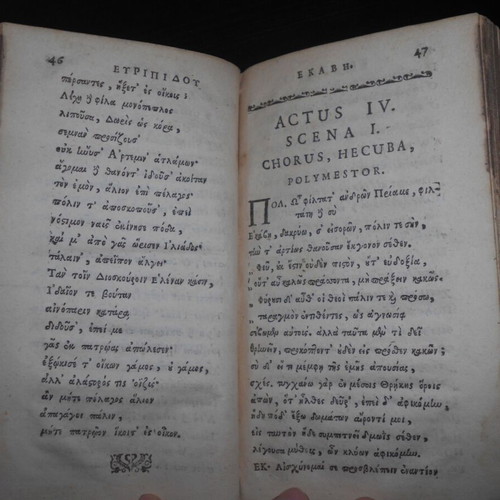 46
ΕΥΡΙΠΙΔΟΥ
λέχη φίλια μονόπεπλος
λιποῦσα, Δωρὶς ὡς κόρα,
σεμνὰν προσίζουσ'
οὐκ ἤνυσ' Ἄρτεμιν ἁ τλάμων·
ἄγομαι θανόντ' ἰδοῦσ' ἀκοίταν
τὸν ἐμὸν, ἅλιον ἐπὶ πέλαγος·
πόλιν τ' ἀποσκοποῦσ', ἐπεὶ
νόστιμον ναῦς ἐκίνησε πόδα,
καί μ' ἀπὸ γᾶς ὥρισεν Ἰλιάδος·
τάλαιν', ἀπεῖπον ἄλγει·
Τὰν τοῖν Διοσκούροιν Ἑλέναν κάσιν,
Ἰδαῖόν τε βούταν
αἰνόπαριν κατάρᾳ
διδοῦσ', ἐπεί με
γᾶς ἐκ πατρῴας ἀπώλεσεν
ἐξῴκισέ τ' οἴκων γάμος, οὐ γάμος,
ἀλλ' ἀλάστορός τις ὀϊζύς·
ἃν μήτε πέλαγος ἅλιον
ἀπαγάγοι πάλιν,
μήτε πατρῷον ἵκοιτ' ἐς οἶκον.
47
ΕΚΑΒΗ.
ACTUS IV.
SCENA I.
CHORUS, HECUBA,
POLYMESTOR.
ΠΟΛ. Ὦ φίλτατ' ἀνδρῶν Πρίαμε, φιλ-
τάτη σὺ
Ἑκάβη, δακρύω σ' εἰσορῶν, πόλιν τε σὴν,
τήν τ' ἀρτίως θανοῦσαν ἔκγονον σέθεν.
φεῦ, οὐκ ἔστιν οὐδὲν πιστὸν, οὔτ' εὐδοξία,
οὔτ' αὖ καλῶς πράσσοντα, μὴ πράξειν κακῶς·
φύρουσι δ' αὔθ' οἱ θεοὶ πάλιν τε πρόσω,
ταραγμὸν ἐντιθέντες, ὡς ἀγνωσίᾳ
σέβωμεν αὐτούς. ἀλλὰ ταῦτα μὲν τί δεῖ
θρηνεῖν, προκόπτοντ' οὐδὲν εἰς πρόσθεν κακῶν;
σὺ δ' εἴ τι μέμφῃ τῆς ἐμῆς ἀπουσίας,
σχές. τυγχάνω γὰρ ἐν μέσοις Θρῄκης ὅροις
ἀπὼν, ὅτ' ἦλθες δεῦρ'. ἐπεὶ δ' ἀφικόμην,
ἤδη πόδ' ἔξω δωμάτων αἴροντί μοι,
εἰς ταυτὸν ἥδε συμπιτνεῖ δμωῒς σέθεν,
λέγουσα μύθους, ὧν κλύων ἀφικόμην.
ΕΚ. Αἰσχύνομαί σε προσβλέπειν ἐναντίον